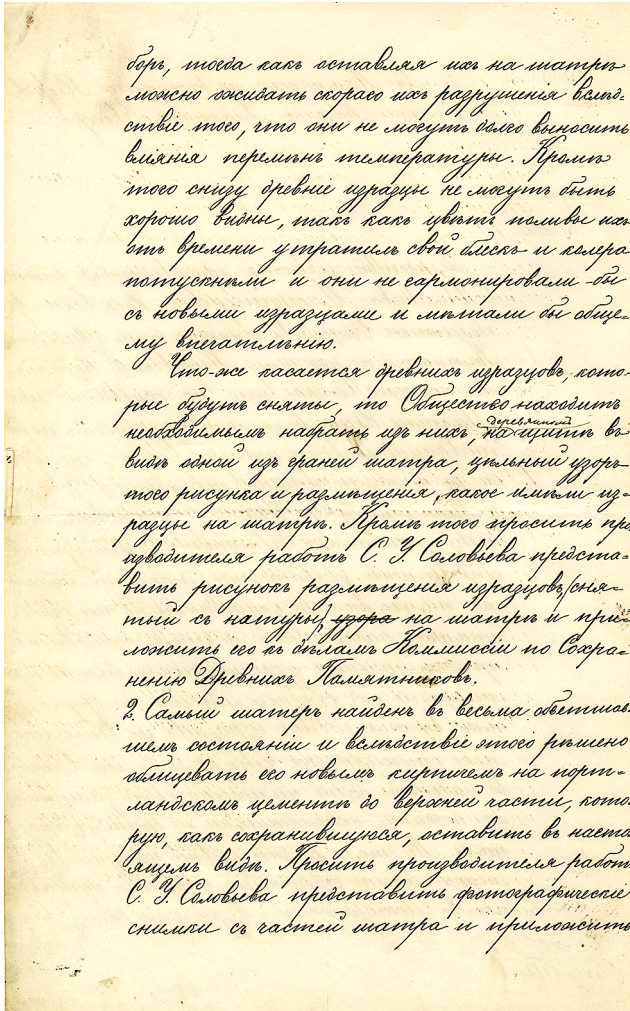 боръ, тогда какъ оставляя ихъ на шатрѣ
можно ожидать скораго ихъ разрушенія вслѣд-
ствіе того, что они не могутъ долго выносить
вліянія перемѣнъ температуры. Кромѣ
того снизу древніе изразцы не могутъ быть
хорошо видны, такъ какъ цвѣтъ поливы ихъ
отъ времени утратилъ свой блескъ и колера
потускнѣли и они не гармонировали-бы
съ новыми изразцами и мѣшали бы обще-
му впечатлѣнію.
Что-же касается древнихъ изразцовъ, кото-
рые будутъ сняты, то Общество находитъ
необходимымъ набрать изъ нихъ, на деревянный щитъ въ
видѣ одной изъ граней шатра, цѣльный узоръ
того рисунка и размѣщенія, какое имѣли из-
разцы на шатрѣ. Кромѣ того просить про-
изводителя работъ С. У. Соловьева предста-
вить рисунокъ размѣщенія изразцовъ (сня-
тый съ натуры) узора на шатрѣ и при-
ложить его къ дѣламъ Коммиссіи по Сохра-
ненію Древнихъ Памятниковъ.
2. Самый шатеръ найденъ въ весьма обветшав-
шемъ состояніи и вслѣдствіе этого рѣшено
облицевать его новымъ кирпичемъ на порт-
ландскомъ цементѣ до верхней части, кото-
рую, какъ сохранившуюся, оставить въ насто-
ящемъ видѣ. Просить производителя работъ
С. У. Соловьева представить фотографическіе
снимки съ частей шатра и приложить